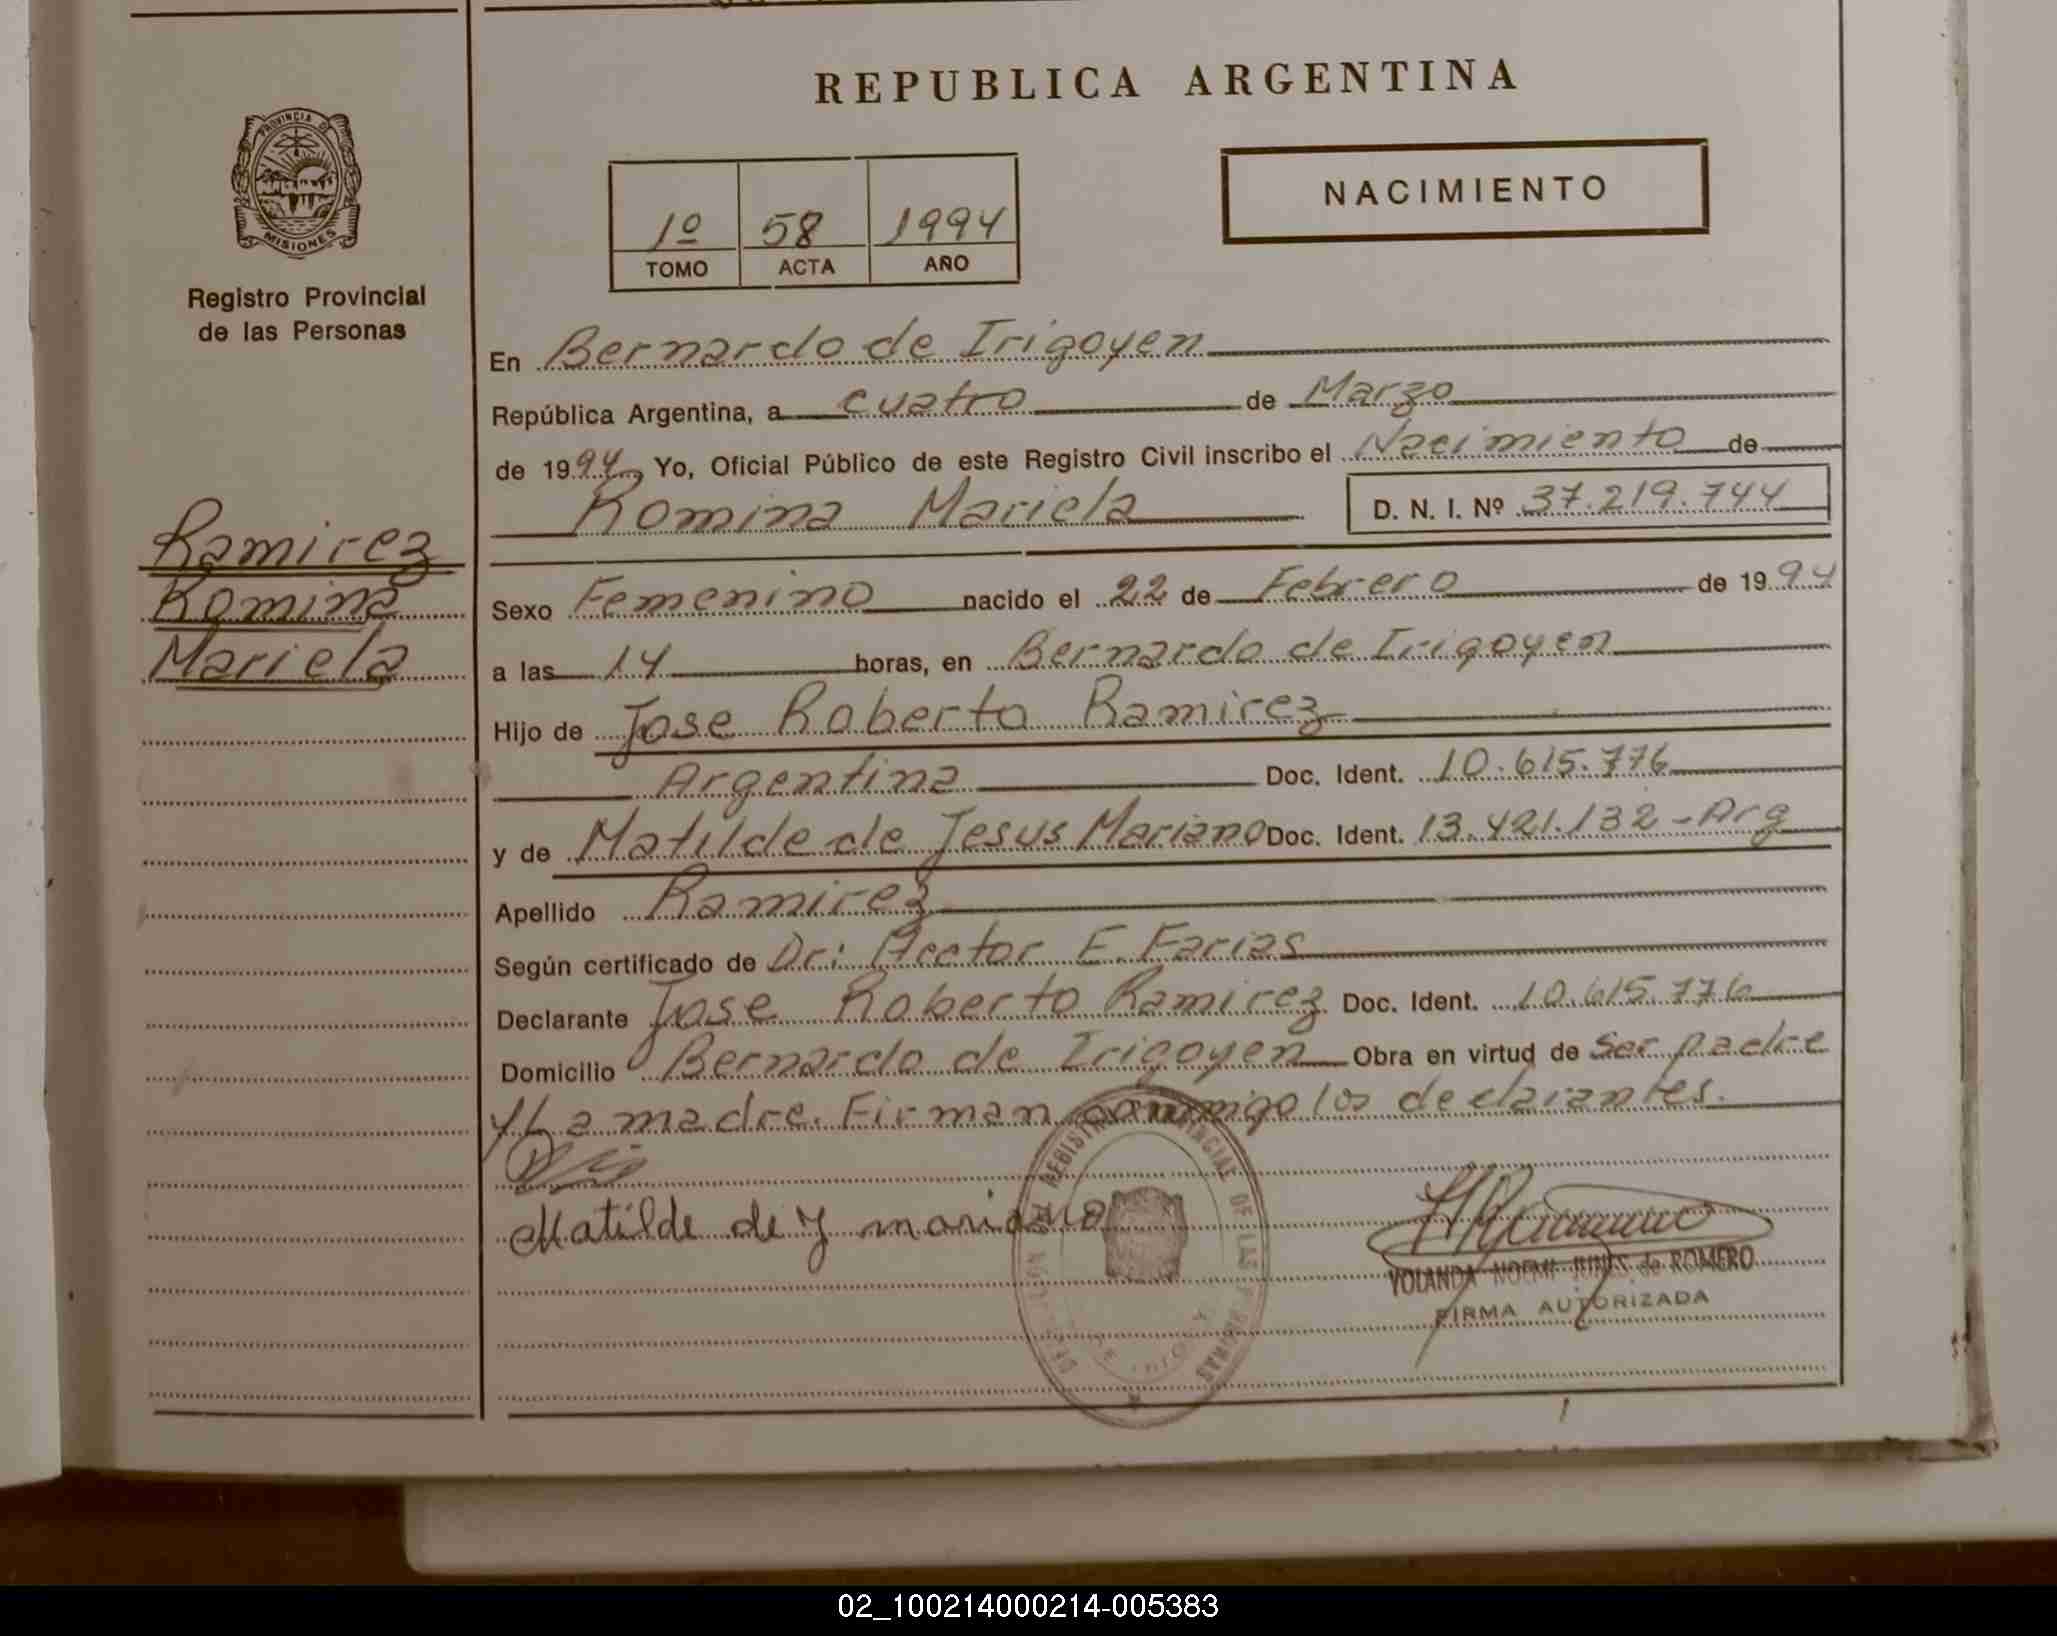 REPUBLICA ARGENTINA
PROVINCIA DE
MISIONES
Registro Provincial
de las Personas
1º 58 1994
TOMO ACTA AÑO
NACIMIENTO
En Bernardo de Irigoyen
República Argentina, a cuatro de Marzo
de 1994, Yo, Oficial Público de este Registro Civil inscribo el Nacimiento de
Romina Mariela D. N. I. Nº 37.219.744
Ramirez
Romina
Mariela
Sexo Femenino nacido el 22 de Febrero de 1994
a las 14 horas, en Bernardo de Irigoyen
Hijo de Jose Roberto Ramirez
Argentina Doc. Ident. 10.615.776
y de Matilde de Jesus Mariano Doc. Ident. 13.421.132 - Arg
Apellido Ramirez
Según certificado de Dr: Hector E. Farias
Declarante Jose Roberto Ramirez Doc. Ident. 10.615.776
Domicilio Bernardo de Irigoyen Obra en virtud de Ser padre
y La madre. Firman conmigo los declarantes.
Matilde de J mariano
YOLANDA NOEMI JUNES de ROMERO
FIRMA AUTORIZADA
02_100214000214-005383